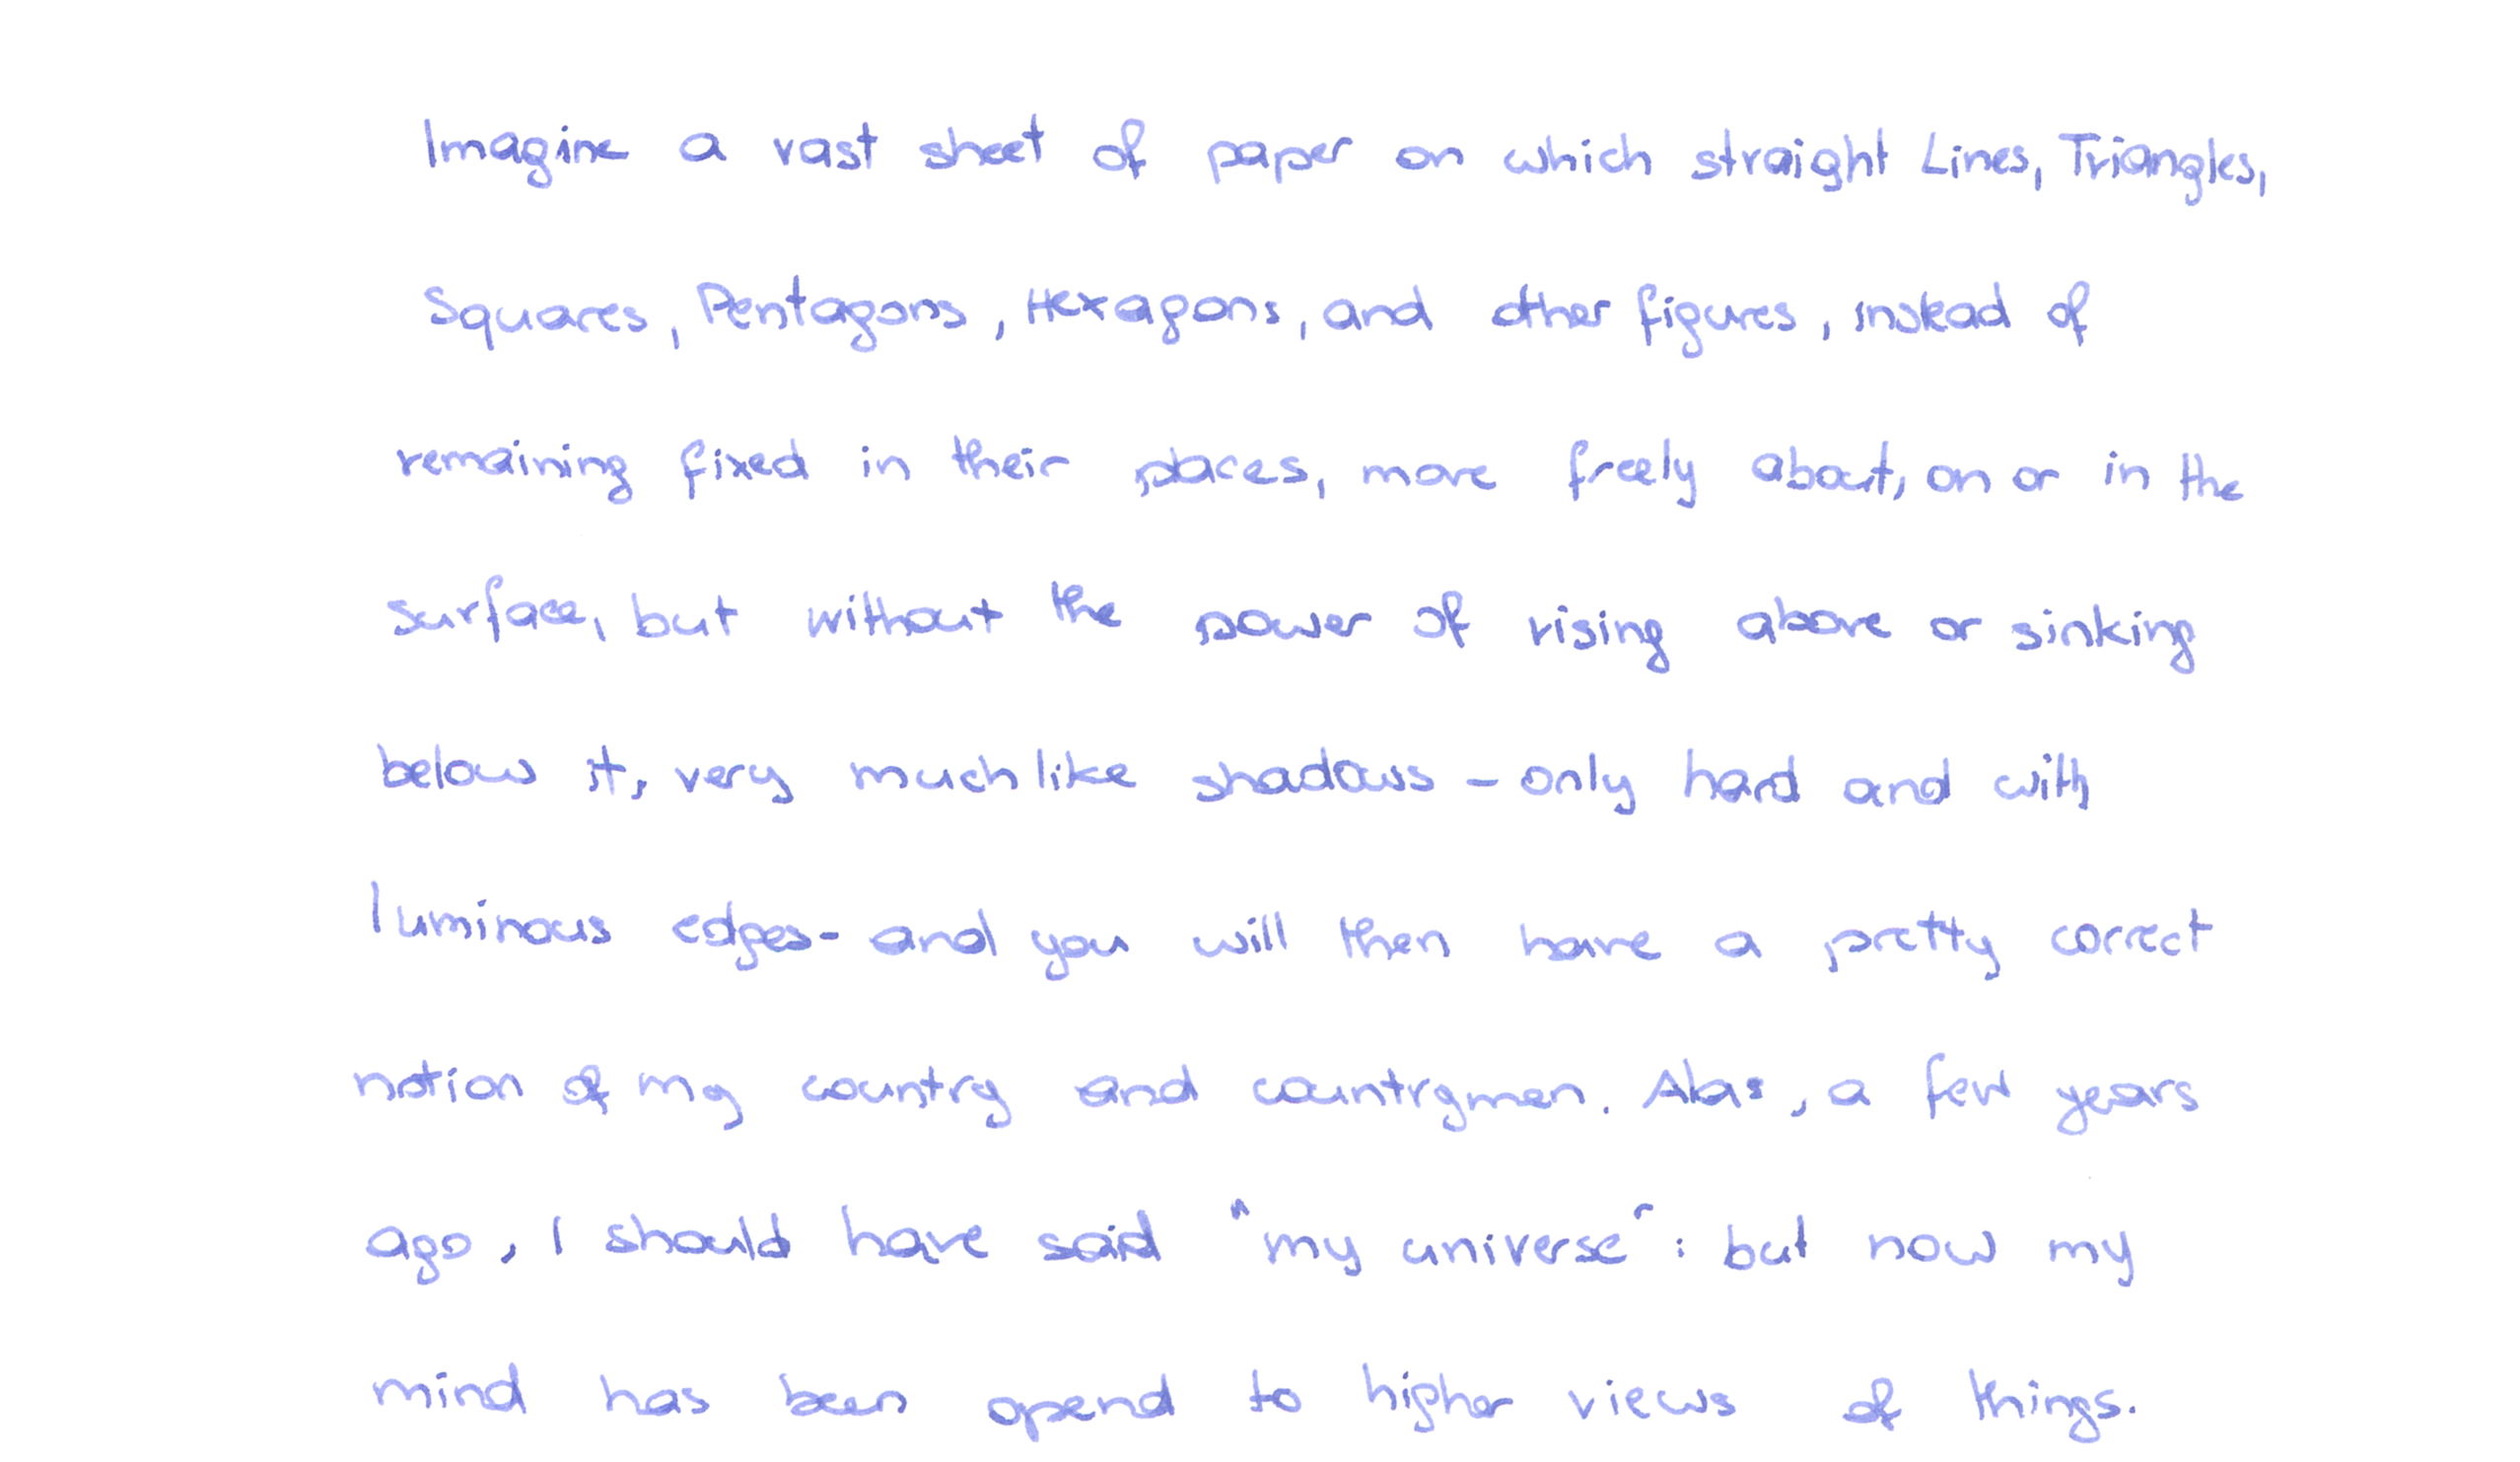 Imagine a vast sheet of paper on which straight Lines, Triangles,
Squares, Pentagons, Hexagons, and other figures, instead of
remaining fixed in their places, move freely about, on or in the
surface, but without the power of rising above or sinking
below it, very much like shadows - only hard and with
luminous edges- and you will then have a pretty correct
notion of my country and countrymen. Alas, a few years
ago, I should have said "my universe": but now my
mind has been opend to higher views of things.